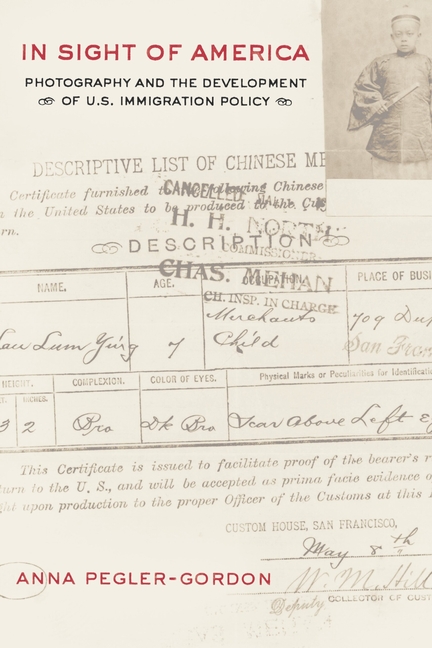 IN SIGHT OF AMERICA
PHOTOGRAPHY AND THE DEVELOPMENT
OF U.S. IMMIGRATION POLICY
DESCRIPTIVE LIST OF CHINESE ME
Certificate furnished to the following Chinese
the United States to be produced to the Cus
rn.
CANCELLED
H. H. NORTH
COMMISSIONER
DESCRIPTION
CHAS. MEHAN
CH. INSP. IN CHARGE
NAME. AGE. OCCUPATION. PLACE OF BUSI
Lau Lum Ying 7 Merchants Child 709 Dup
San Fran
HEIGHT. COMPLEXION. COLOR OF EYES. Physical Marks or Peculiarities for Identificatio
INCHES.
3 2 Bro Dk Bro Scar above Left Ey
This Certificate is issued to facilitate proof of the bearer's r
turn to the U. S., and will be accepted as prima facie evidence o
ght upon production to the proper Officer of the Customs at this
CUSTOM HOUSE, SAN FRANCISCO,
May 8th
ANNA PEGLER-GORDON
W. M. Hill
Deputy COLLECTOR OF CUST